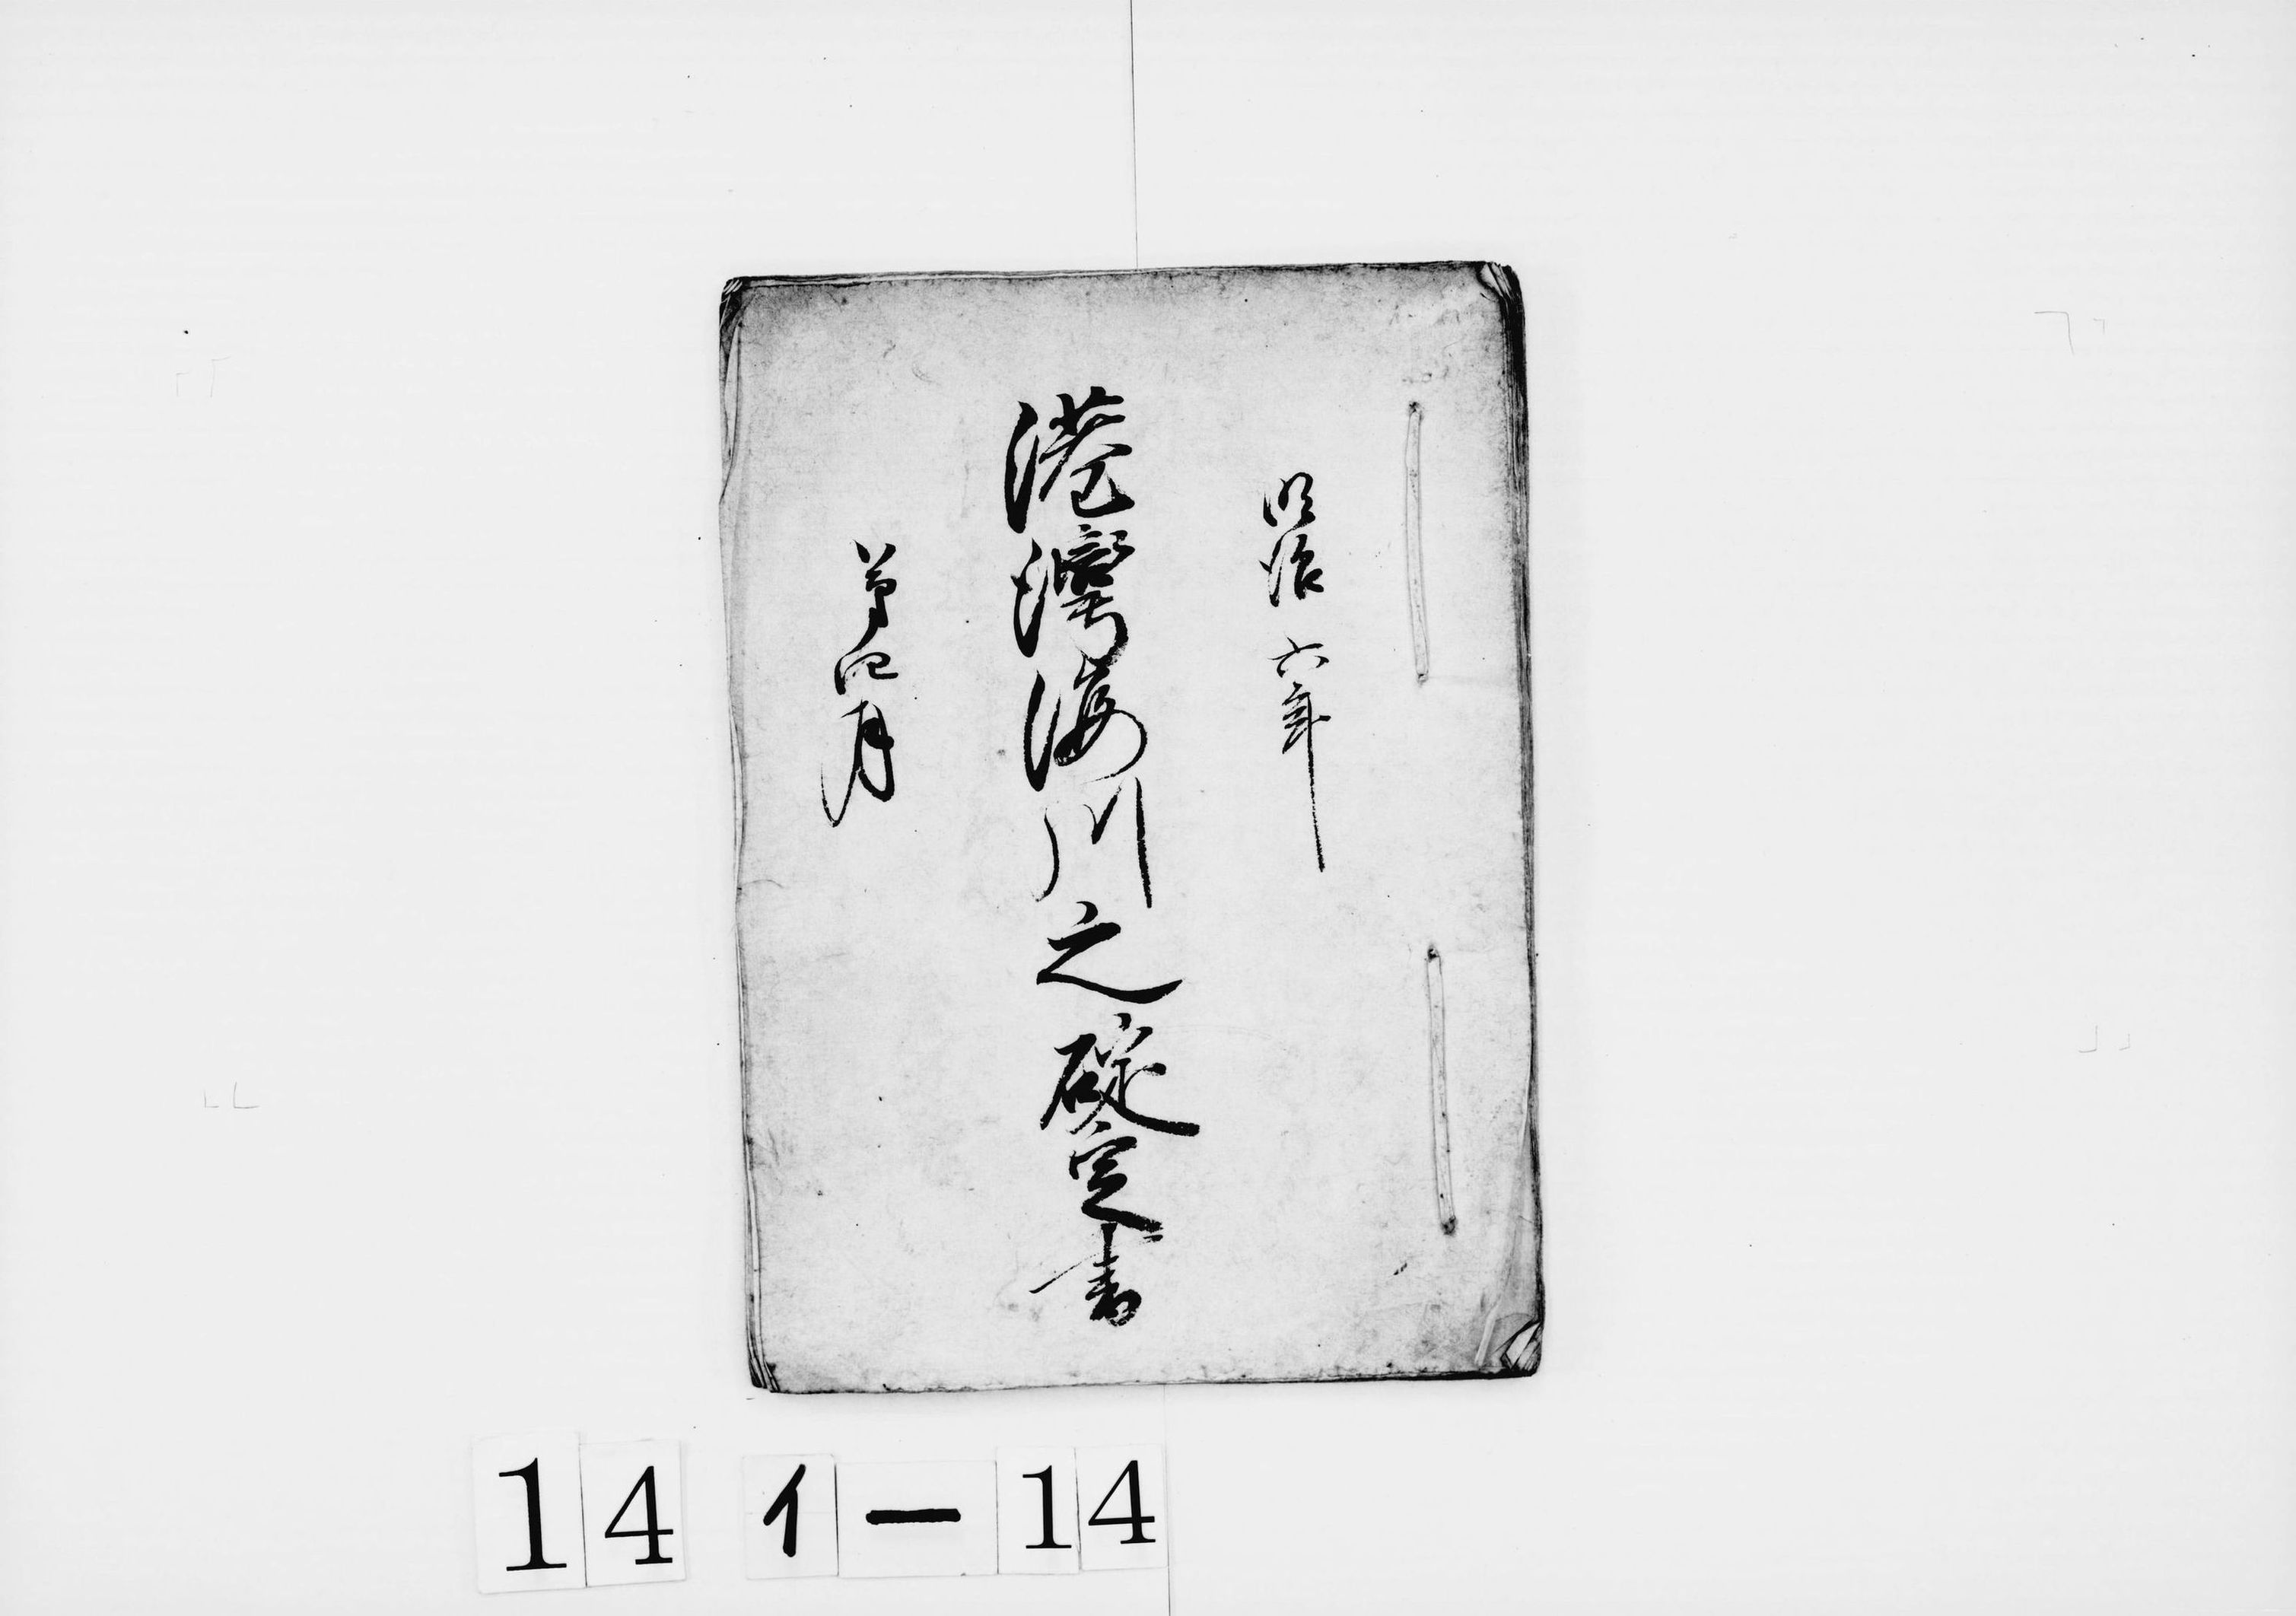 明治六年
港湾海川之碇定書
第四月
14 イー14